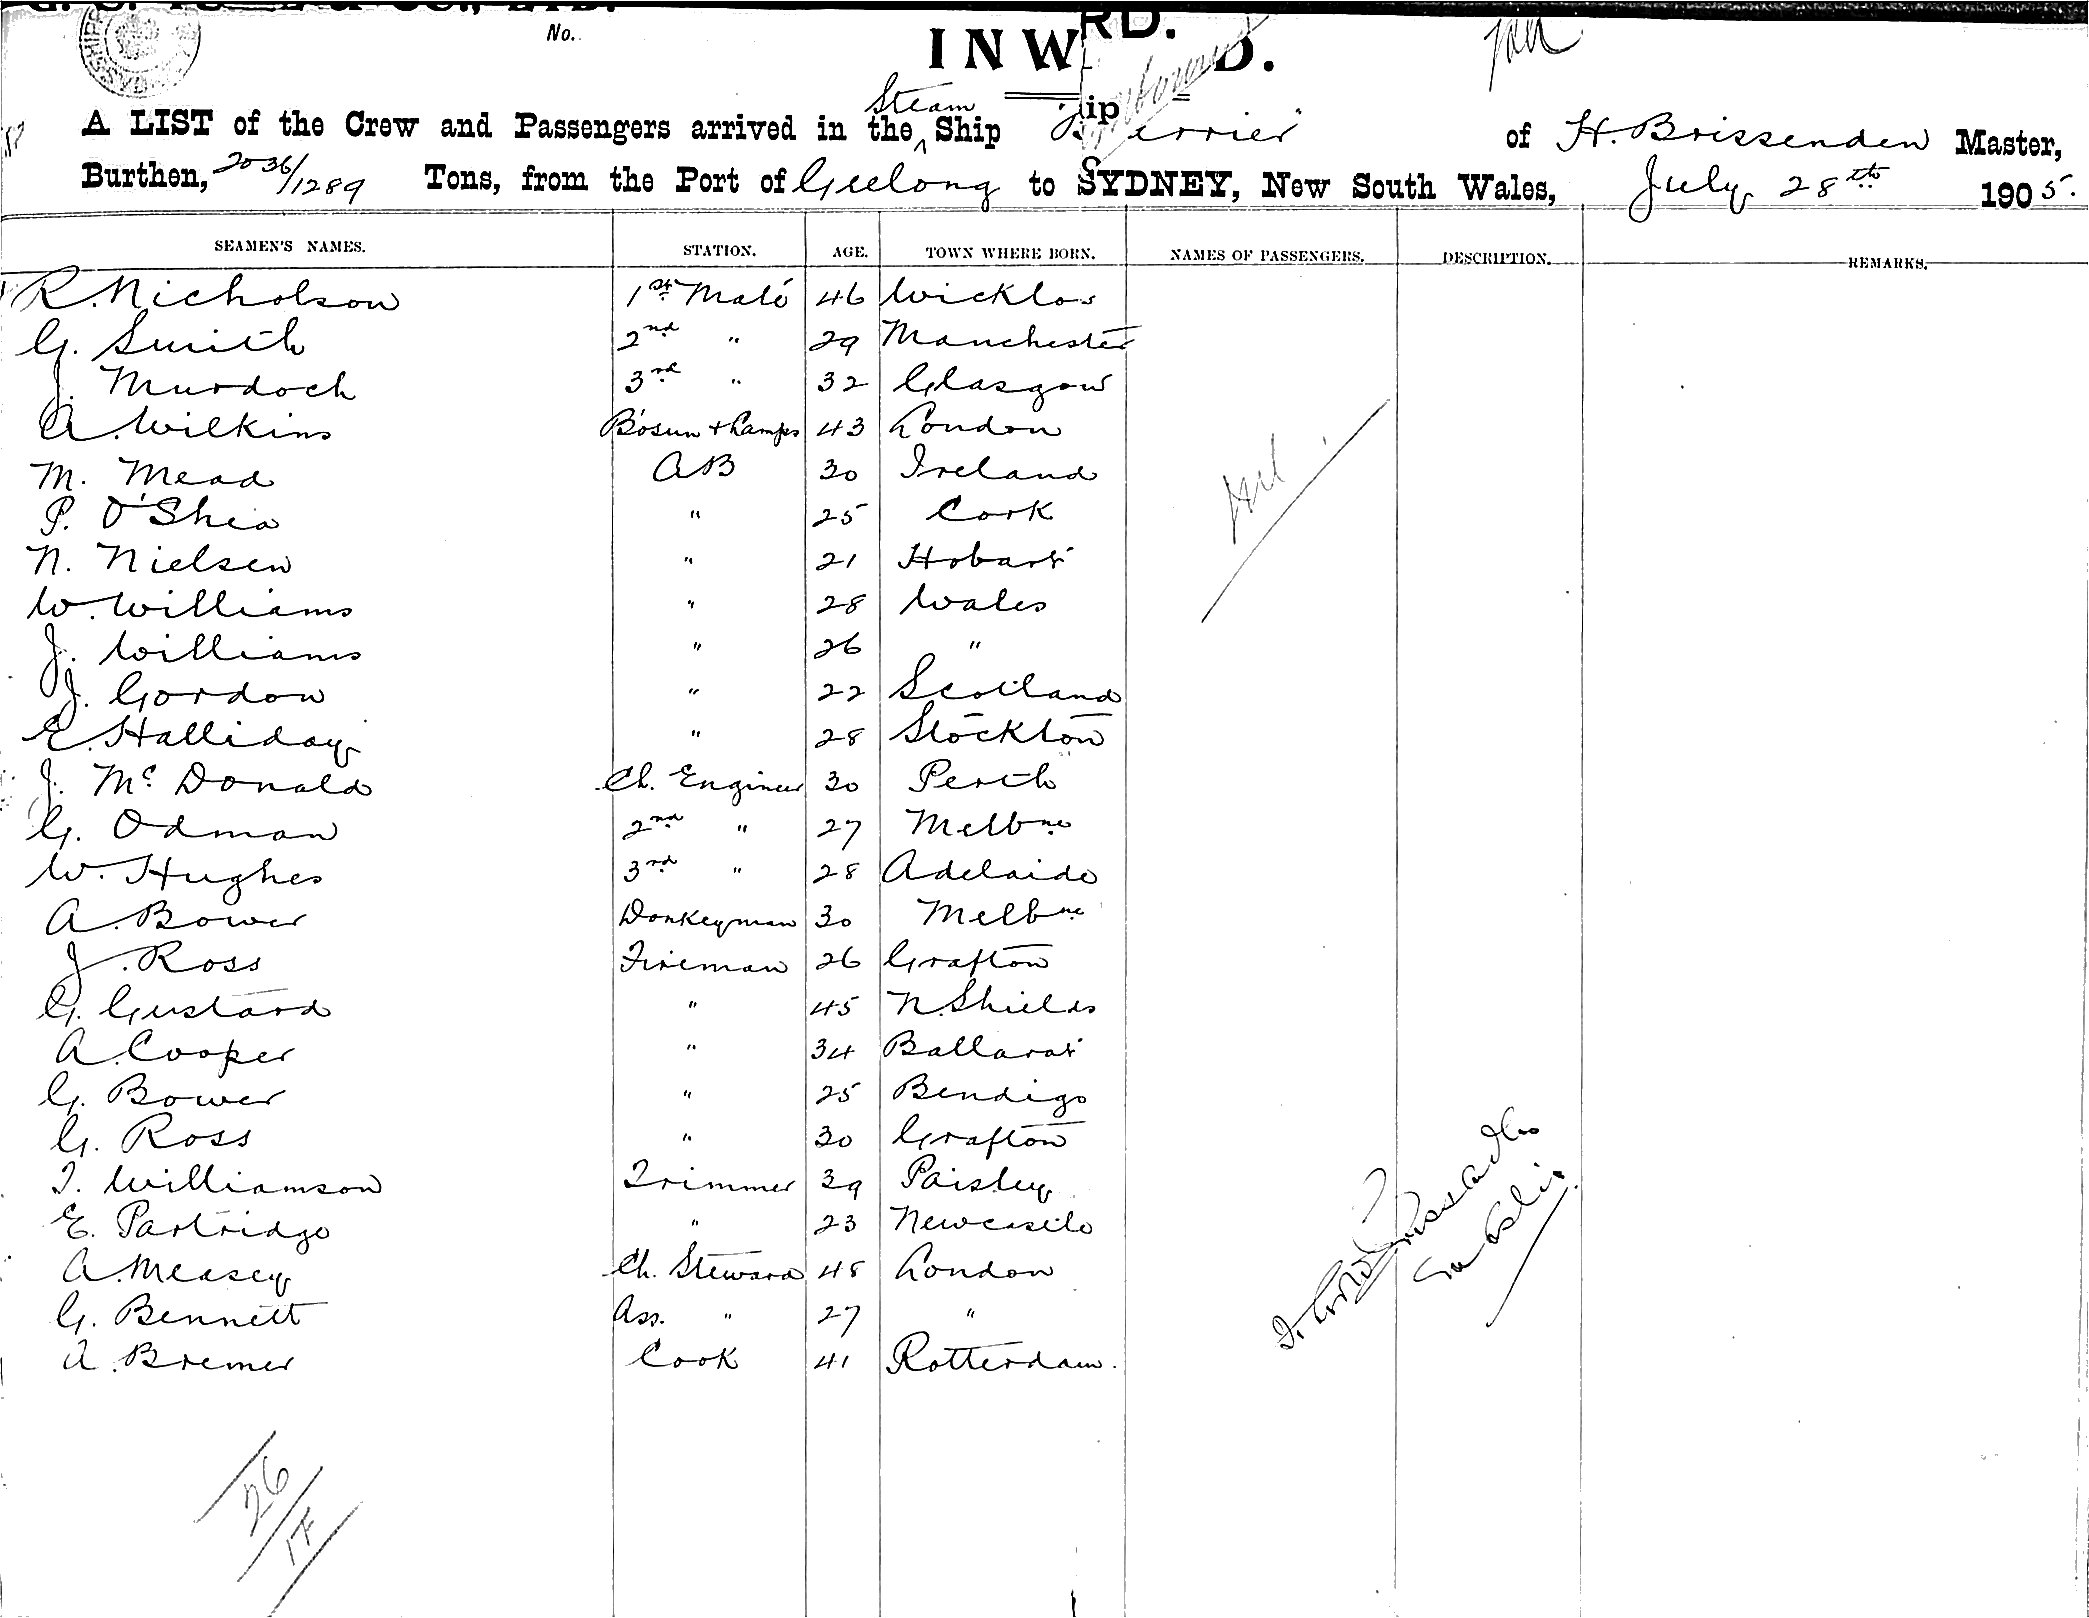 No.
INWARD.
Steam
A LIST of the Crew and Passengers arrived in the Ship "Berrier" of H. Brissenden Master,
Burthen, 2036/1289 Tons, from the Port of Geelong to SYDNEY, New South Wales, July 28th 1905.
SEAMEN'S NAMES. STATION. AGE. TOWN WHERE BORN. NAMES OF PASSENGERS. DESCRIPTION. REMARKS.
R. Nicholson 1st Mate 46 Wicklow
G. Smith 2nd " 29 Manchester
J. Murdoch 3rd " 32 Glasgow
A. Wilkins Bosun + Lamps 43 London
M. Mead AB 30 Ireland
P. O'Shea " 25 Cork
N. Nielsen " 21 Hobart
W. Williams " 28 Wales
J. Williams " 26 "
J. Gordon " 22 Scotland
E. Halliday " 28 Stockton
J. McDonald Ch. Engineer 30 Perth
G. Odman 2nd " 27 Melbne
W. Hughes 3rd " 28 Adelaide
A. Bower Donkeyman 30 Melbne
J. Ross Fireman 26 Grafton
G. Gustard " 45 N. Shields
A. Cooper " 34 Ballarat
G. Bower " 25 Bendigo
G. Ross " 30 Grafton
T. Williamson Trimmer 39 Paisley
E. Partridge " 23 Newcastle
A. Measey Ch. Steward 48 London
G. Bennett Ass. " 27 "
A. Bremer Cook 41 Rotterdam.
26